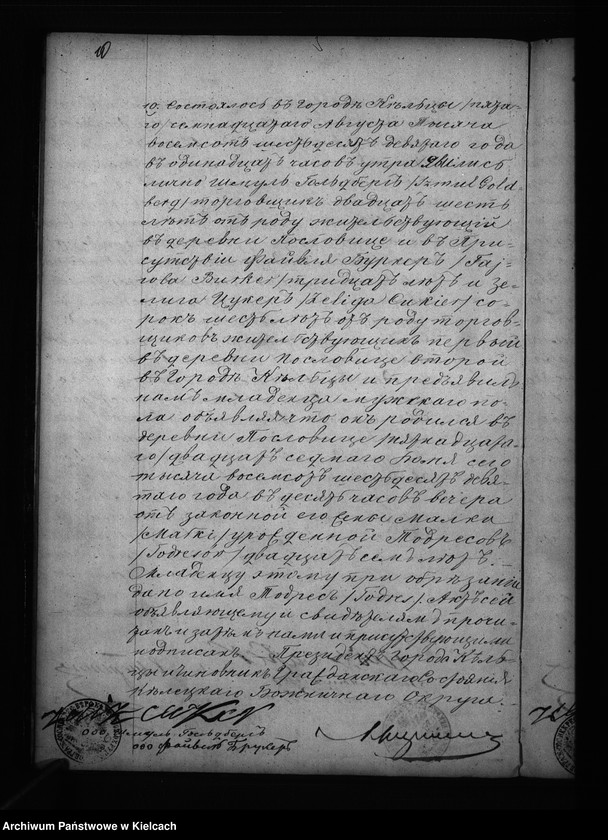 10.
19. Состоялось въ Городѣ Кѣльцы /пята-
го/ семнадцатаго Августа Тысяча
восемсотъ шестьдесятъ девятаго года
въ одинадцать часовъ утра Явились
лично Шмуль Гольдбергъ /Szmul Gold
berg/ торговщикъ двадцать шесть
лѣтъ отъ роду жительствующій
въ деревни Пословице и въ При-
сутствіи Файвля Буркеръ /Faj-
/ тридцать лѣтъ и Зе-
лига Цукеръ /Zeliga Cukier/ со-
рокъ шесть лѣтъ отъ роду торгов-
щиковъ жительствующихъ первый
въ деревни Пословице второй
въ Городѣ Кѣльцы и предъявилъ
намъ младенца мужскаго по-
ла объявляя что онъ родился въ
деревни Пословице /пятнадцата-
го/ двадцать седмаго сего
тысяча восемсотъ шестьдесятъ девя-
таго года въ десять часовъ вечера
отъ законной его жены Малка
/Malki/ урожденной Тодресовъ
/ двадцать семь лѣтъ. —
Младенцу этому при обрѣзаніи
дано имя Тодресъ / Актъ сей
объявляющему и свидѣтелямъ прочи-
танъ и затѣмъ нами и присутствующими
подписанъ. Президентъ Города Кѣль-
цы и Чиновникъ Гражданскаго Состоянія
Кѣлецкаго Божничнаго Округа. —
Гольдбергъ
ооо Файвель
Archiwum Państwowe w Kielcach